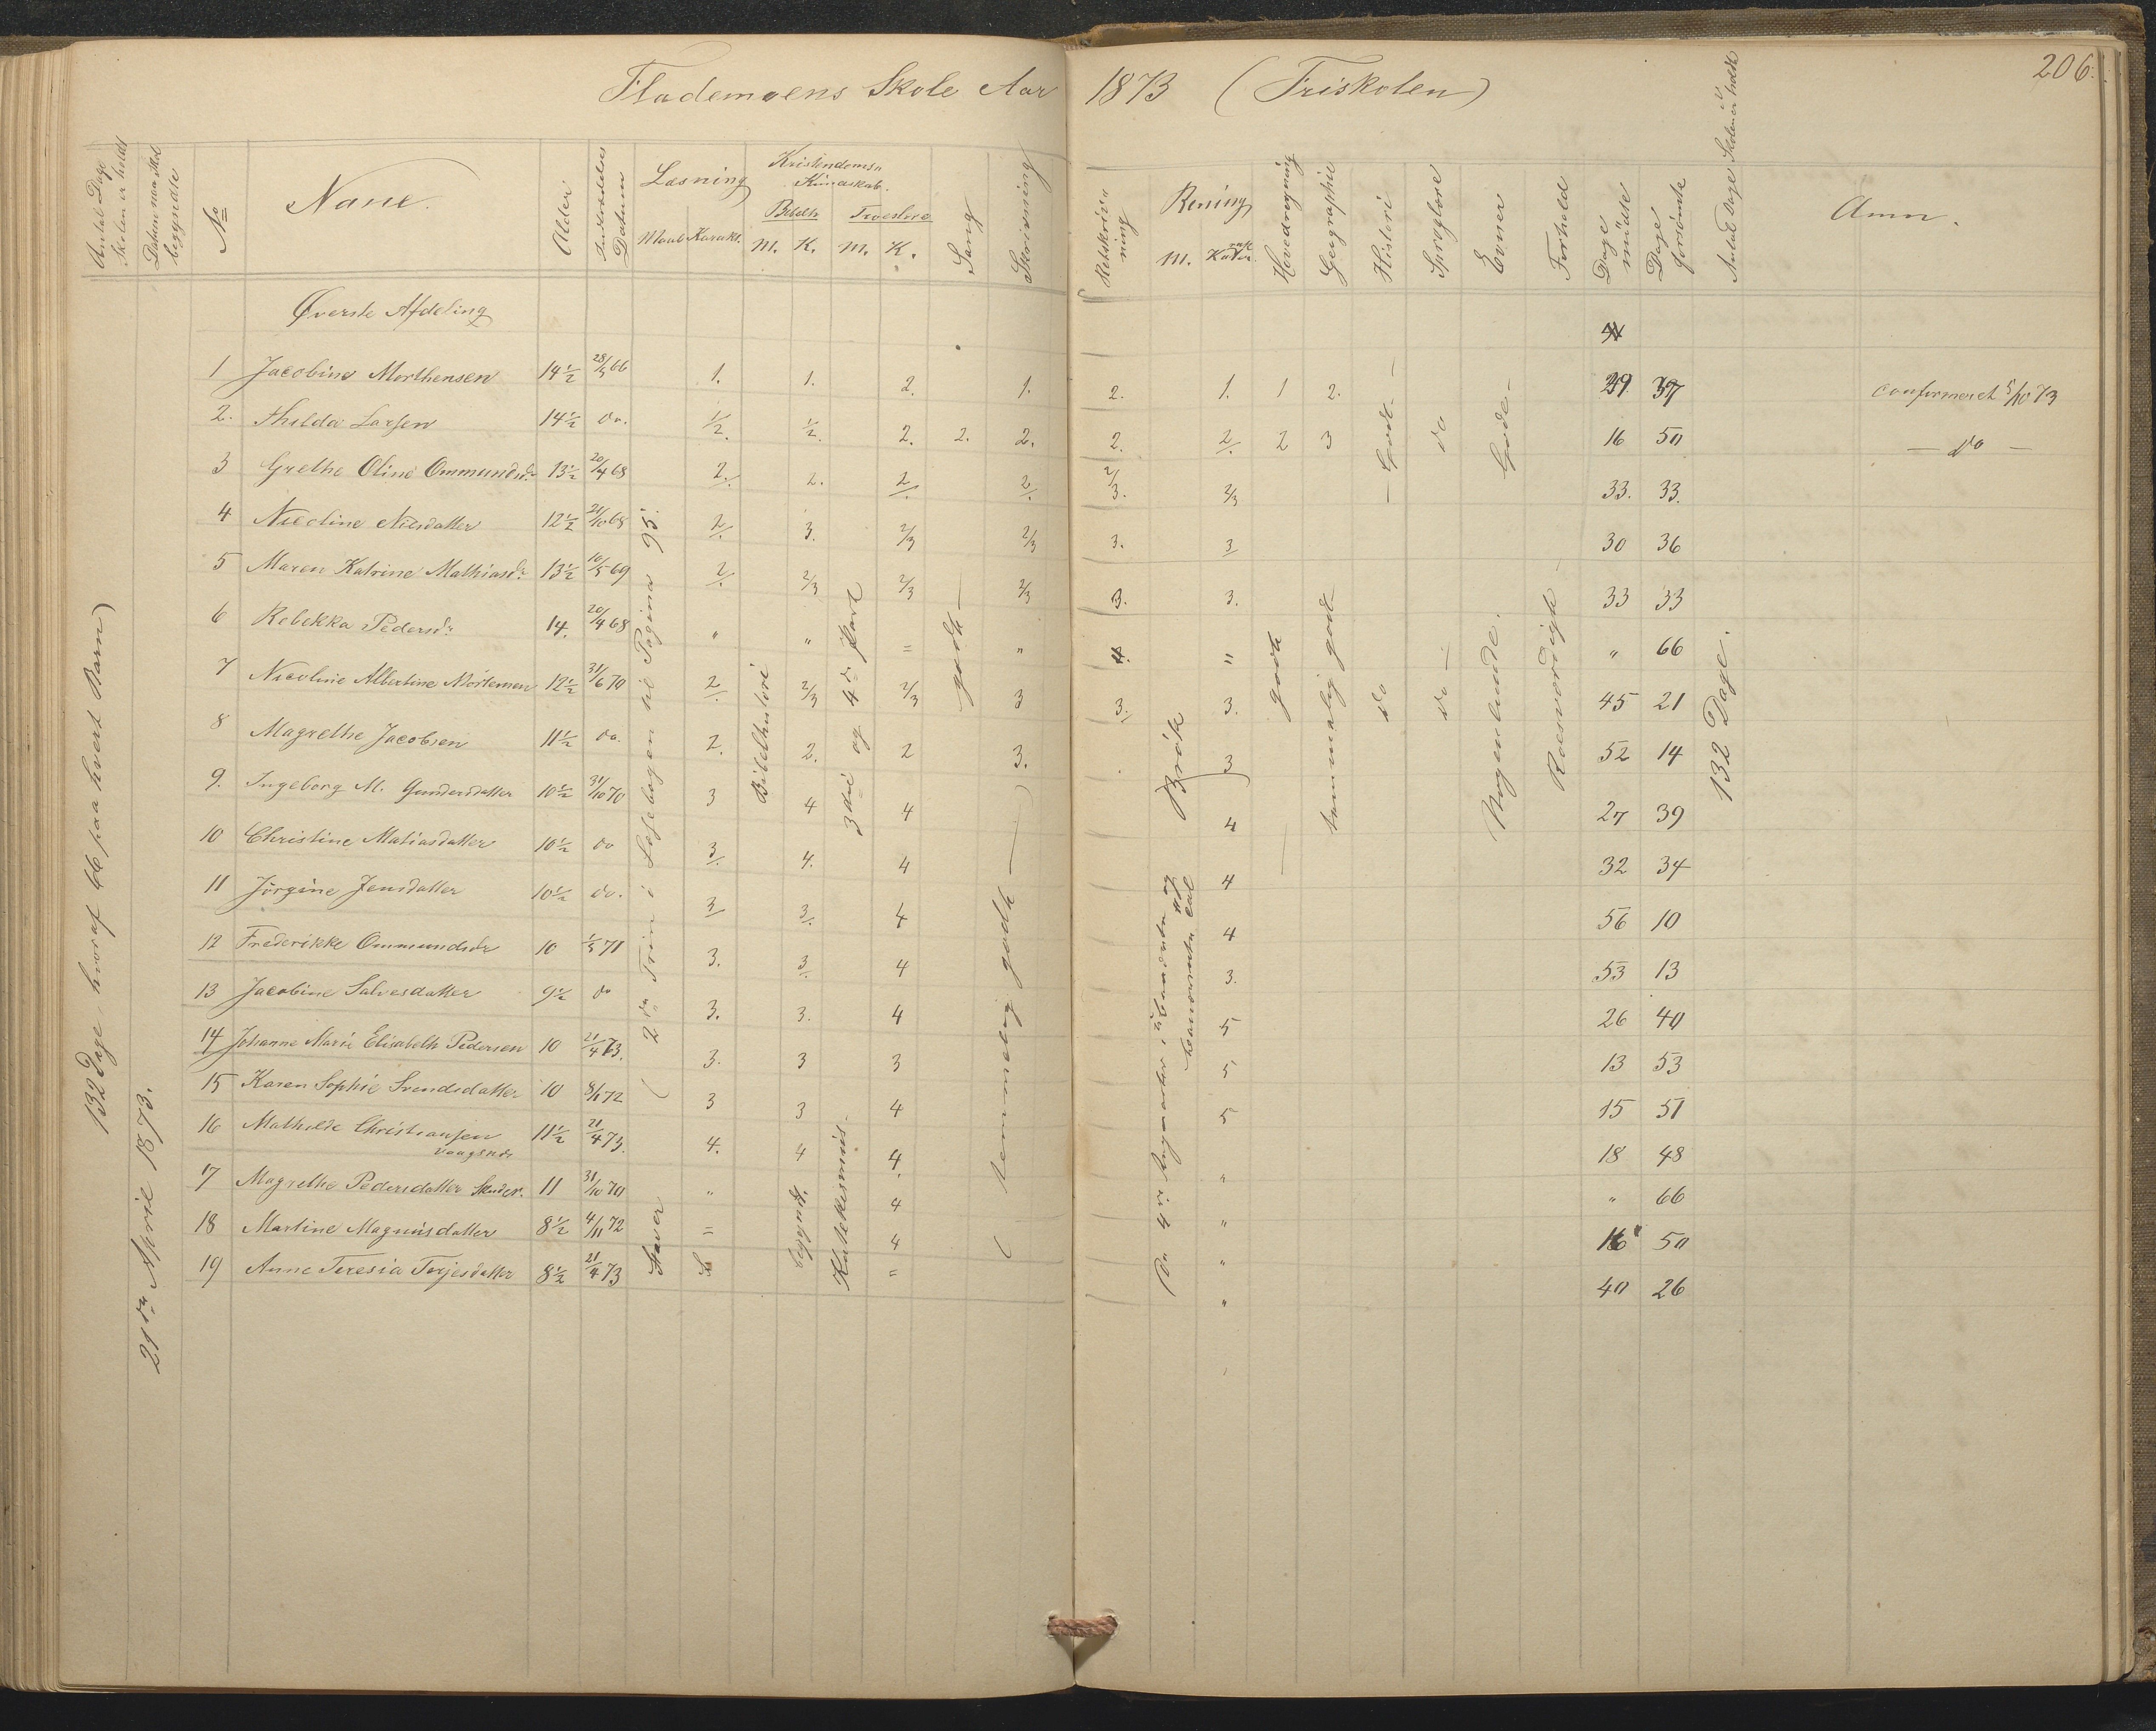 Flademoens Skole Aar 1873 (Friskolen)
206.
Antal Dage Skolen er holdt
Datum naar Skol begyndte
No
Navne.
Alder
Datum
Læsning
Maal Karakt.
Kristendoms Kundskab.
Bibelh M. K.
Troeslære M. K.
Sang
Skrivning
Retskrivning
Regning
M. Karakt
Hovedregning
Geographie
Historie
Sproglære
Evner
Forhold
Dage mödte
Dage forsömte
Antal Dage Skolen er holdt
Anm.
132 Dage, hvoraf 66 paa hvert Barn)
21de April 1873.
Øverste Afdeling
1 Jacobine Morthensen 14½ 28/5 66 1. 1. 2. 1. 2. 1. 1 2. 29. 37 confirmeret 5/10 73
2. Thilda Larsen 14½ do. ½. ½. 2. 2. 2. 2. 2/. 2 3 16 50 — do —
3 Grethe Oline Ommundsd. 13½ 20/4 68 2/. 2. 2/. 2/. 2/3. 2/3 33. 33.
4 Nicoline Nilsdatter 12½ 21/10 68 2/. 3. 2/3 2/3 3. 3/ 30 36
5 Maren Katrine Mathiasd. 13½ 10/5 69 2/. 2/3 2/3 2/3 3. 3. 33 33
6 Rebekka Pedersd. 14. 20/4 68 " " = " 4. " " 66
7 Nicoline Albertine Mortensen 12½ 31/6 70 2/. 2/3 2/3 3 3/. 3. 45 21
8 Magrethe Jacobsen 11½ do. 2. 2. 2 3. 3 52 14
9. Ingeborg M. Gundersdatter 10½ 31/10 70 3 4 4 4 27 39
10 Christine Matiasdatter 10½ do 3/. 4. 4 4 32 34
11 Jörgine Jensdatter 10½ do. 3/ 3/. 4 4 56 10
12 Frederikke Ommundsdr 10 1/5 71 3. 3/. 4 3. 53 13
13 Jacobine Salvesdatter 9½ do 3. 3. 4 5 26 40
14 Johanne Marie Elisabeth Pedersen 10 21/4 73. 3. 3 3 5 13 53
15 Karen Sophie Svendsdatter 10 8/1 72 3 3 4 5 15 51
16 Mathilde Christiansen Vaagsnds 11½ 21/4 73. 4. 4 4. " 18 48
17 Magrethe Pedersdatter 11 31/10 70 " 4 " " 66
18 Martine Magnusdatter 8½ 4/11 72 = 4 " 16 50
19 Anne Teresia Terjesdatter 8½ 21/4 73 = " 40 26
(2det Trin i Læsebogen til Pagina 95.
Staver
Bibelhistorie
begyndt.
3die og 4de Part
Katekesmus.
godt —
( temmelig godt — )
Brök
De 4 r. i ubenævnte og benævnte
godt
temmelig godt
— Godt. —
do
do
do —
Gode —
Nogenlunde.
Roesværdigt
132 Dage.